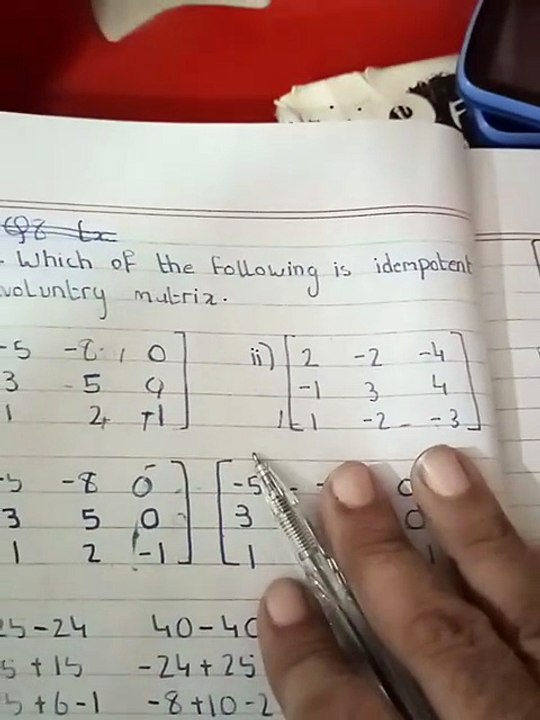 Which of the following is idempotent
voluntry mutrix.
-5 -8 0 ii) 2 -2 -4
3 5 0 -1 3 4
1 2 +1 1 -2 -3
-5 -8 0 -5
3 5 0 3 0
1 2 -1 1 1
25-24 40-40
5+15 -24+25
5+6-1 -8+10-2